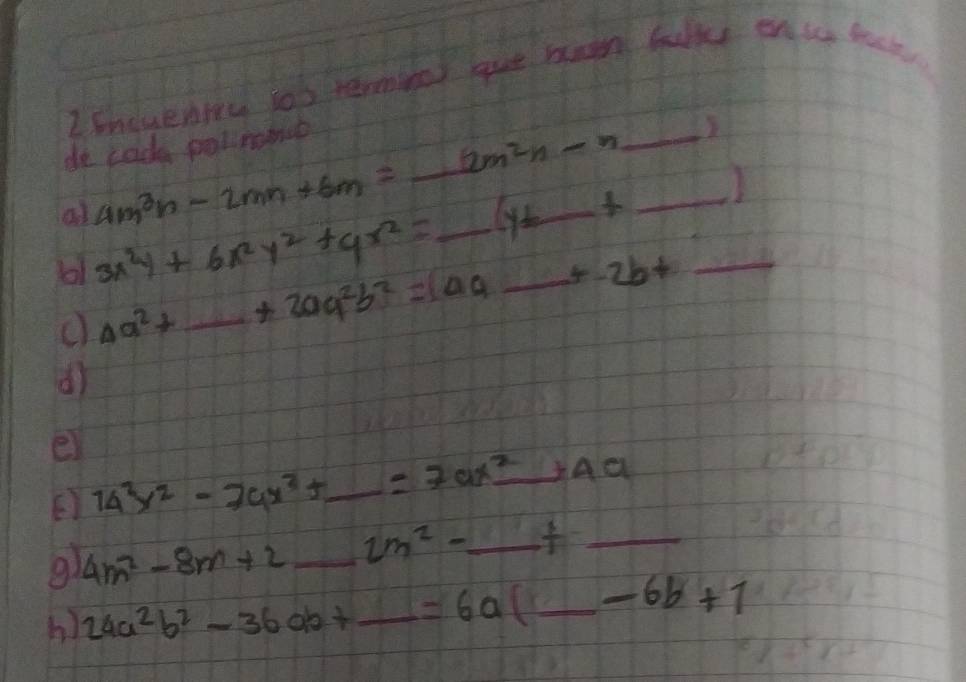 2 Encuentra los terminos que hacen en
de cada polinomio
a) 4m³n - 2mn + 6m = ___ (2m²n - n ___ )
b) 3x²y + 6x²y² + 9x² = ___ (y + ___ + ___ )
c) 4a² + ___ + 20a²b² = 4a ___ + 2b + ___
d)
e)
f) 14²x² - 7ax² + ___ = 7ax² ___ + 4a
g) 4m² - 8m + 2 ___ 2m² - ___ + ___
h) 24a²b² - 36ab + ___ = 6a ( ___ - 6b + 1